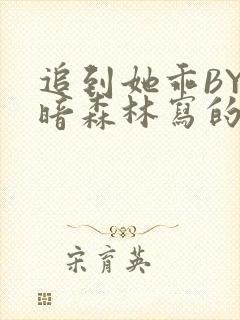 追到她乖BY
暗森林寫的
宋育英